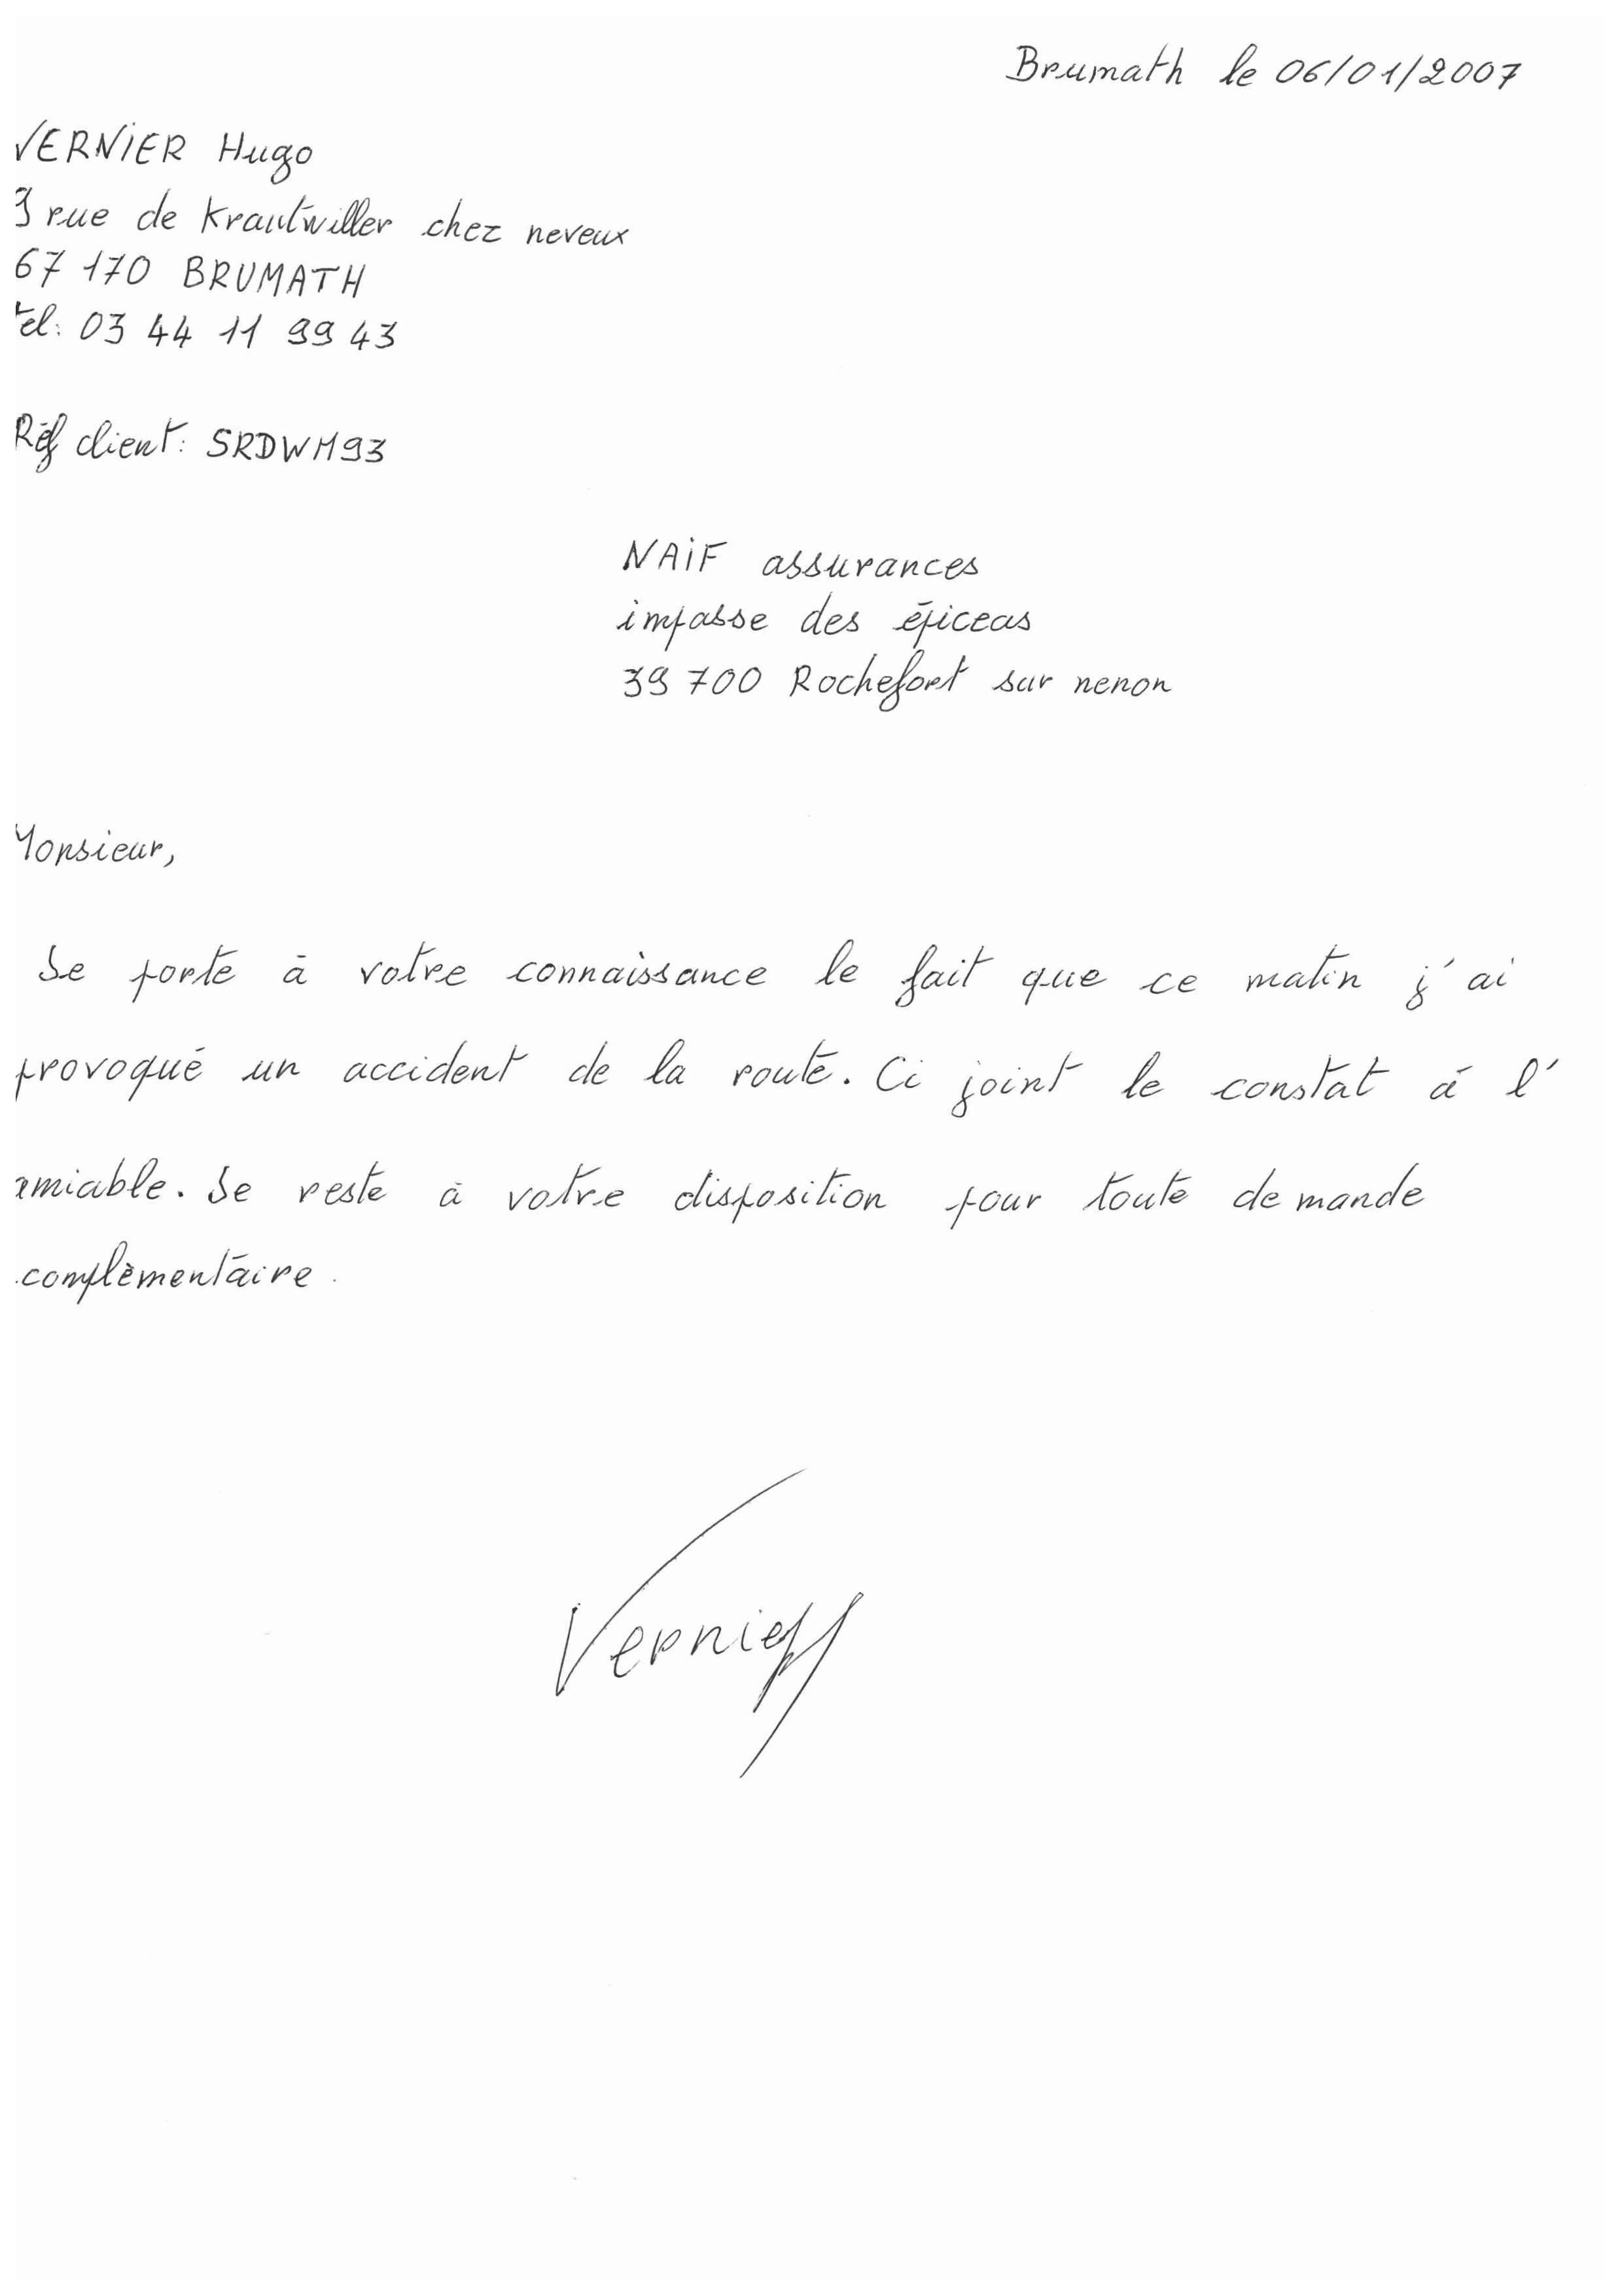 Brumath le 06/01/2007
VERNIER Hugo
3 rue de Krautwiller chez neveux
67 170 BRUMATH
tel: 03 44 11 99 43
Réf client: SRDWM93
NAIF assurances
impasse des épiceas
39 700 Rochefort sur nenon
Monsieur,
Je porte à votre connaissance le fait que ce matin j'ai
provoqué un accident de la route. Ci joint le constat à l'
amiable. Je reste à votre disposition pour toute demande
complémentaire.
Vernier